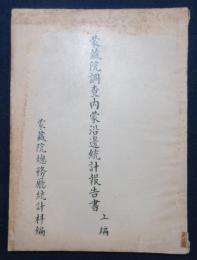 蒙藏院調查內蒙沿邊統計報告書上編
蒙藏院總務廳統計科編